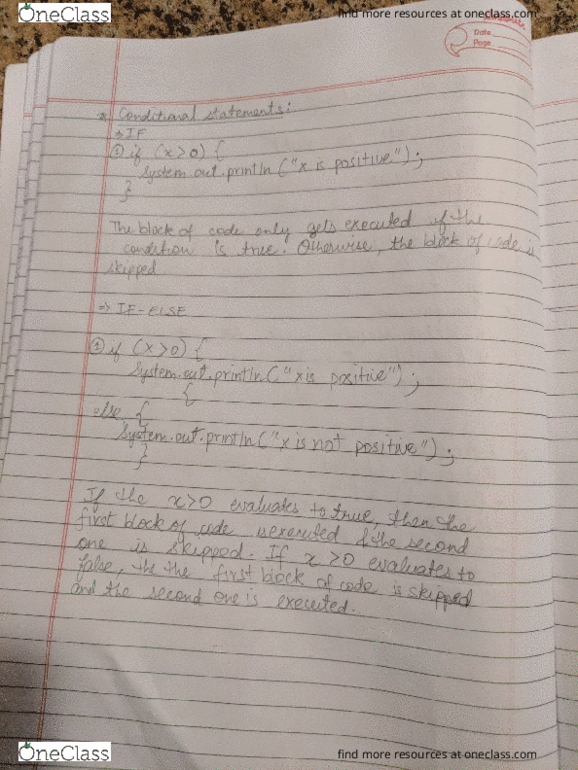 OneClass
find more resources at oneclass.com
Date
Page
* Conditional statements:
⇒ IF
① if (x>0) {
System.out.println ("x is positive");
}
The block of code only gets executed if the
condition is true. Otherwise, the block of code is
skipped
⇒ IF-ELSE
① if (x>0) {
System.out.println("x is positive");
{
else {
System.out.println("x is not positive");
}
If the x>0 evaluates to true, then the
first block of code is executed & the second
one is skipped. If x >0 evaluates to
false, the the first block of code is skipped
and the second one is executed.
OneClass
find more resources at oneclass.com